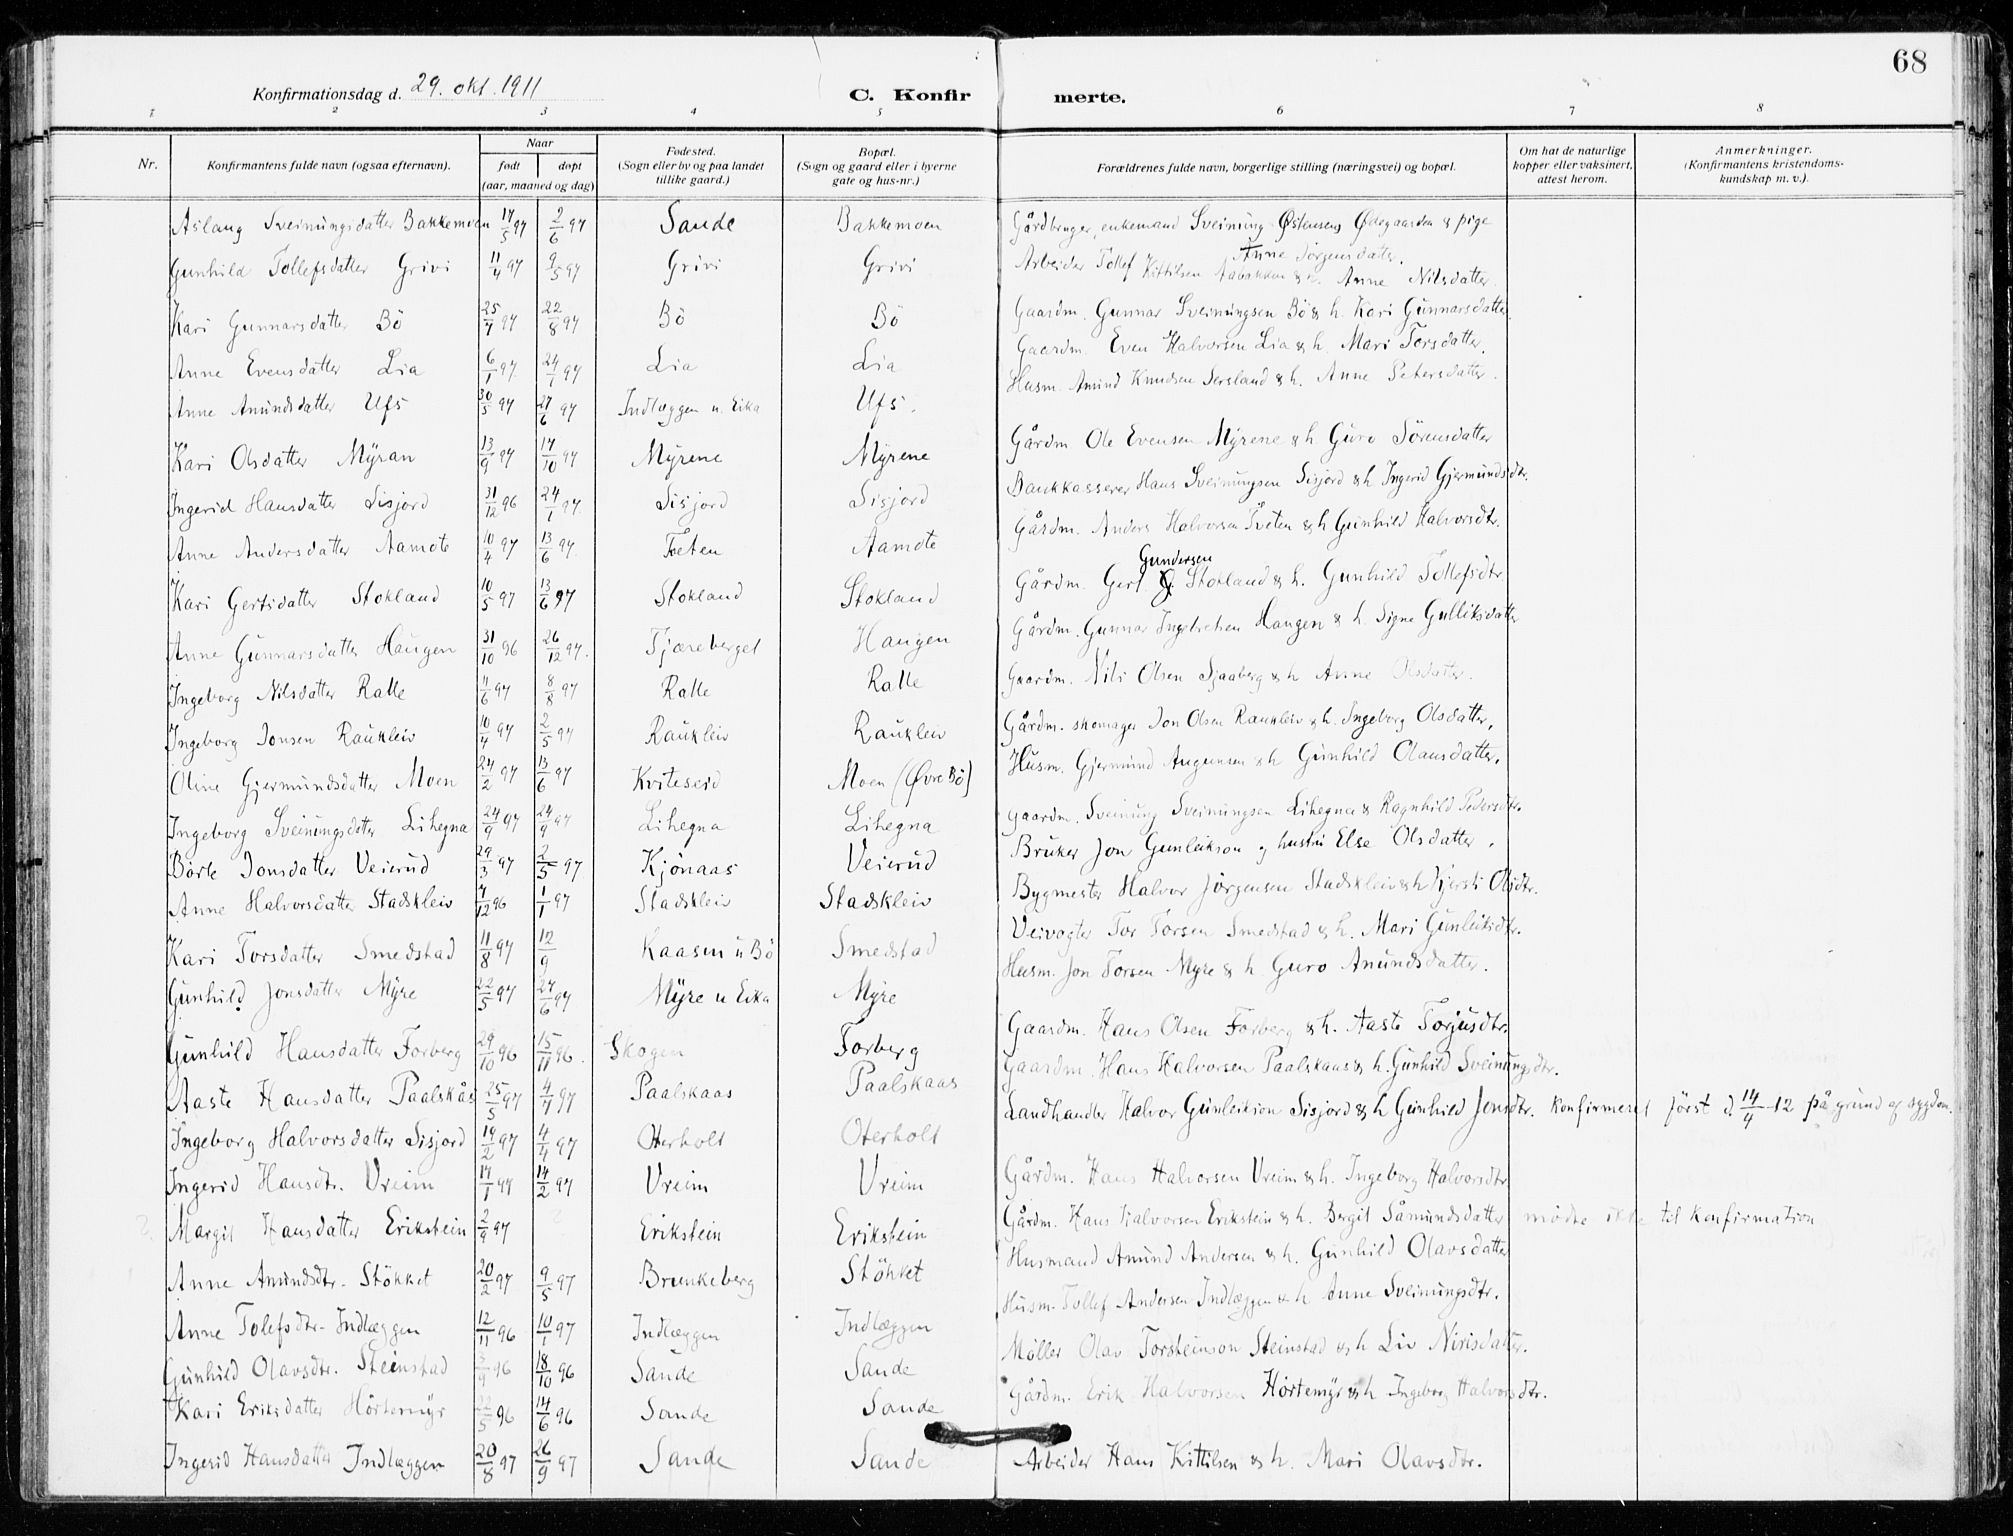 68
Konfirmationsdag d. 29. okt. 1911
C. Konfirmerte.
1 2 3 4 5 6 7 8
Nr. Konfirmantens fulde navn (ogsaa efternavn). Naar født døpt (aar, maaned og dag) Fødested. (Sogn eller by og paa landet tillike gaard.) Bopæl. (Sogn og gaard eller i byerne gate og hus-nr.) Forældrenes fulde navn, borgerlige stilling (næringsvei) og bopæl. Om hat de naturlige kopper eller vaksinert, attest herom. Anmerkninger. (Konfirmantens kristendoms-kundskap m. v.).
Aslaug Sveinungsdatter Bakkemoen 17/5 97 2/6 97 Sande Bakkemoen Gårdbruger, enkemand Sveinung Østensen Ødegaarden & pige Anne Jörgensdatter.
Gunhild Tollefsdatter Grivi 11/4 97 9/5 97 Grivi Grivi Arbeider Tollef Kittilsen & h. Anne Nilsdatter.
Kari Gunnarsdatter Bö 25/7 97 22/8 97 Bö Bö Gaardm. Gunnar Sveinungsen Bö & h. Kari Gunnarsdatter.
Anne Evensdatter Lia 6/1 97 24/1 97 Lia Lia Gaardm. Even Halvorsen Lia & h. Mari Torsdatter.
Anne Amundsdatter Ufs 30/5 97 27/6 97 Indlæggen u. Eika Ufs. Husm. Amund Knudsen & h. Anne Petersdatter.
Kari Olsdatter Myran 13/9 97 17/10 97 Myrene Myrene Gårdm Ole Evensen Myrene & h. Guro Sörensdatter
Ingerid Hansdatter Sisjord 31/12 96 24/1 97 Sisjord Sisjord Bankkasserer Hans Sveinungsen Sisjord & h Ingerid Gjermundsdtr.
Anne Andersdatter Aamote 10/4 97 13/6 97. Tveten Aamote Gårdm. Anders Halvorsen Tveten & h Gunhild Halvorsdtr.
Kari Gertsdatter Stokland 10/5 97 13/6 97 Stokland Stokland Gårdm. Gert Gundersen Stokland & h. Gunhild Tollefsdtr
Anne Gunnarsdatter Haugen 31/10 96 26/12 97. Tjæreberget Haugen Gårdm. Gunnar Ingebretsen Haugen & h. Signe Gulliksdatter
Ingeborg Nilsdatter Ralle 11/6 97 8/8 97 Ralle Ralle Gaardm. Nils Olsen Sjaaberg & h Anne Olsdatter.
Ingeborg Jonsen Raukleiv 10/4 97 2/5 97 Raukleiv Raukleiv Gårdm. skomager Jon Olsen Raukleiv & h. Ingeborg Olsdatter.
Oline Gjermundsdatter Moen 24/2 97 13/6 97 Kviteseid Moen (Øvre Bö) Husm. Gjermund Augunsen & h Gunhild Olausdatter.
Ingeborg Sveinungsdatter Lihegna 24/9 97 24/9 97 Lihegna Lihegna Gaardm. Sveinung Sveinungsen Lihegna & Ragnhild Pedersdtr.
Börte Jonsdatter Veierud 29/3 97 2/5 97 Kjönaas Veierud Bruker Jon Gunleikson og hustru Else Olsdatter.
Anne Halvorsdatter Stadskleiv 7/12 96 1/1 97 Stadskleiv Stadskleiv Bygmester Halvor Jörgensen Stadskleiv & h Kjersti Olsdtr.
Kari Torsdatter Smedstad 11/8 97 12/9 Kaasen u Bö Smedstad Veivogter Tor Torsen Smedstad & h. Mari Gunleiksdtr.
Gunhild Jonsdatter Myre 22/5 97 27/6 97 Myre u Eika Myre Husm. Jon Torsen Myre & h Guro Amundsdatter.
Gunhild Hansdatter Forberg 29/10 96 15/11 96. Skogen Forberg Gaardm. Hans Olsen Forberg & h. Aaste Torjusdtr.
Aaste Hansdatter Paalskås 25/5 97 4/7 97 Paalskaas Paalskaas Gaardm. Hans Halvorsen Paalskaas & h. Gunhild Sveinungsdtr.
Ingeborg Halvorsdatter Sisjord 14/2 97 4/4 97 Oterholt Oterholt Landhandler Halvor Gunleikson Sisjord & h Gunhild Jensdtr. Konfirmeret först d 14/4 12 på grund af sygdom.
Ingerid Hansdtr. Vreim 17/1 97 14/2 97 Vreim Vreim Gårdm. Hans Halvorsen Vreim & h. Ingeborg Halvorsdtr
Margit Hansdatter Erikstein 2/9 97 Erikstein Erikstein Gårdm. Hans Halvorsen Erikstein & h. Bergit Såmundsdatter mødte ikke til konfirmation
Anne Amundsdtr. Stökket 20/2 97 9/5 97 Brunkeberg Stökket Husmand Amund Andersen & h. Gunhild Olavsdatter
Anne Tolefsdtr. Indlæggen 12/11 96 10/1 97 Indlæggen Indlæggen Husm. Tollef Andersen Indlæggen & h Anne Sveinungsdtr.
Gunhild Olavsdtr. Steinstad 3/9 96 18/10 96 Sande Sande Møller Olav Torsteinson Steinstad & h Liv Nirisdatter.
Kari Eriksdatter Hörtemyr 22/5 96 14/6 96 Sande Sande Gårdm. Erik Halvorsen Hörtemyr & h Ingeborg Halvorsdtr.
Ingerid Hansdatter Indlæggen 20/8 97 26/9 97 Sande Sande Arbeider Hans Kittilsen & h. Mari Olavsdtr.